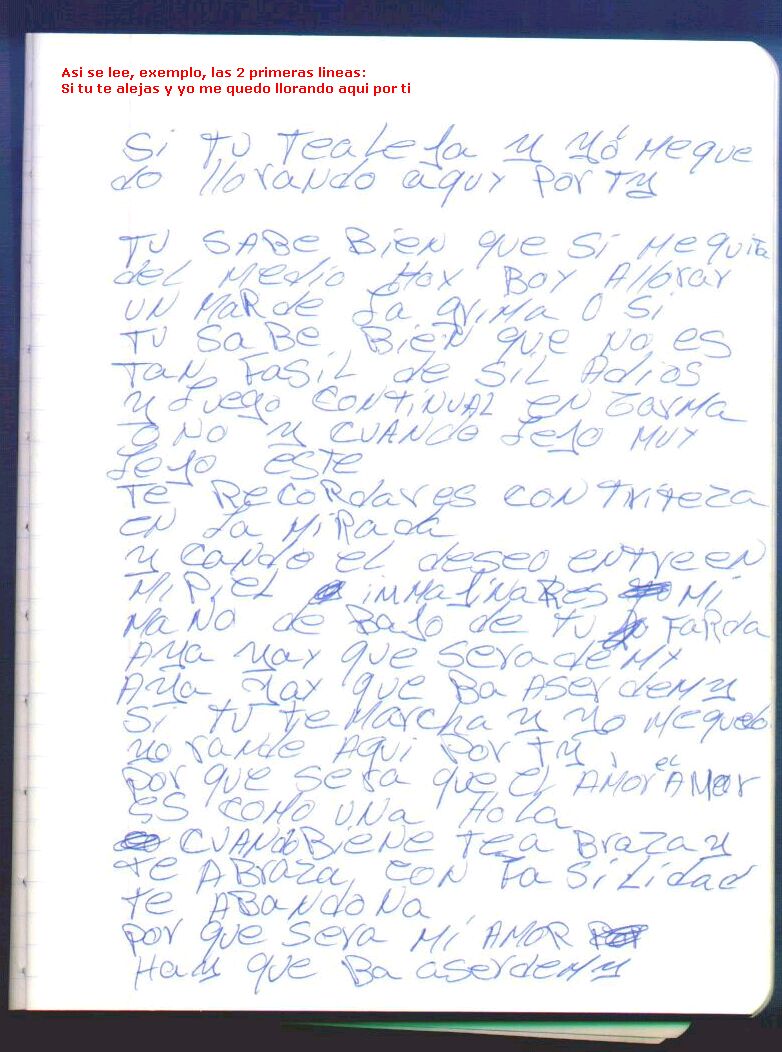 Asi se lee, exemplo, las 2 primeras lineas:
Si tu te alejas y yo me quedo llorando aqui por ti
Si TU TeaLeJa y yó Meque
do llorando aquy Por Ty
TU SABe Bien que Si Mequita
del Medio Hoy BOY Allorar
UN MaRde La griMa O Si
TU SaBe BieN que No es
TaN FaSiL de SiL AdioS
y Luego CONTiNUAL en
O NO y CUANdo LeJO MUY
LeJO eSTe
Te RecoRdares CON TriTeza
eN La MiRada
y Cando el deseo entreen
Mi PieL iMMaJiNaReS Mi
MaNO de BaJO de TU FaRda
AYa yay que Sera deMy
AYa yay que Ba Aser deMy
Si TU Te Marcha y yo Mequedo
yo rando Aqui Por Ty
Por que Sera que el AMor el AMar
eS COMO UNa HoLa
CUANdoBieNe Tea Braza y
Te ABraza CON FaSiLidad
Te ABaNdoNa
Por que Sera Mi AMOR
Hay que Ba aserdemy